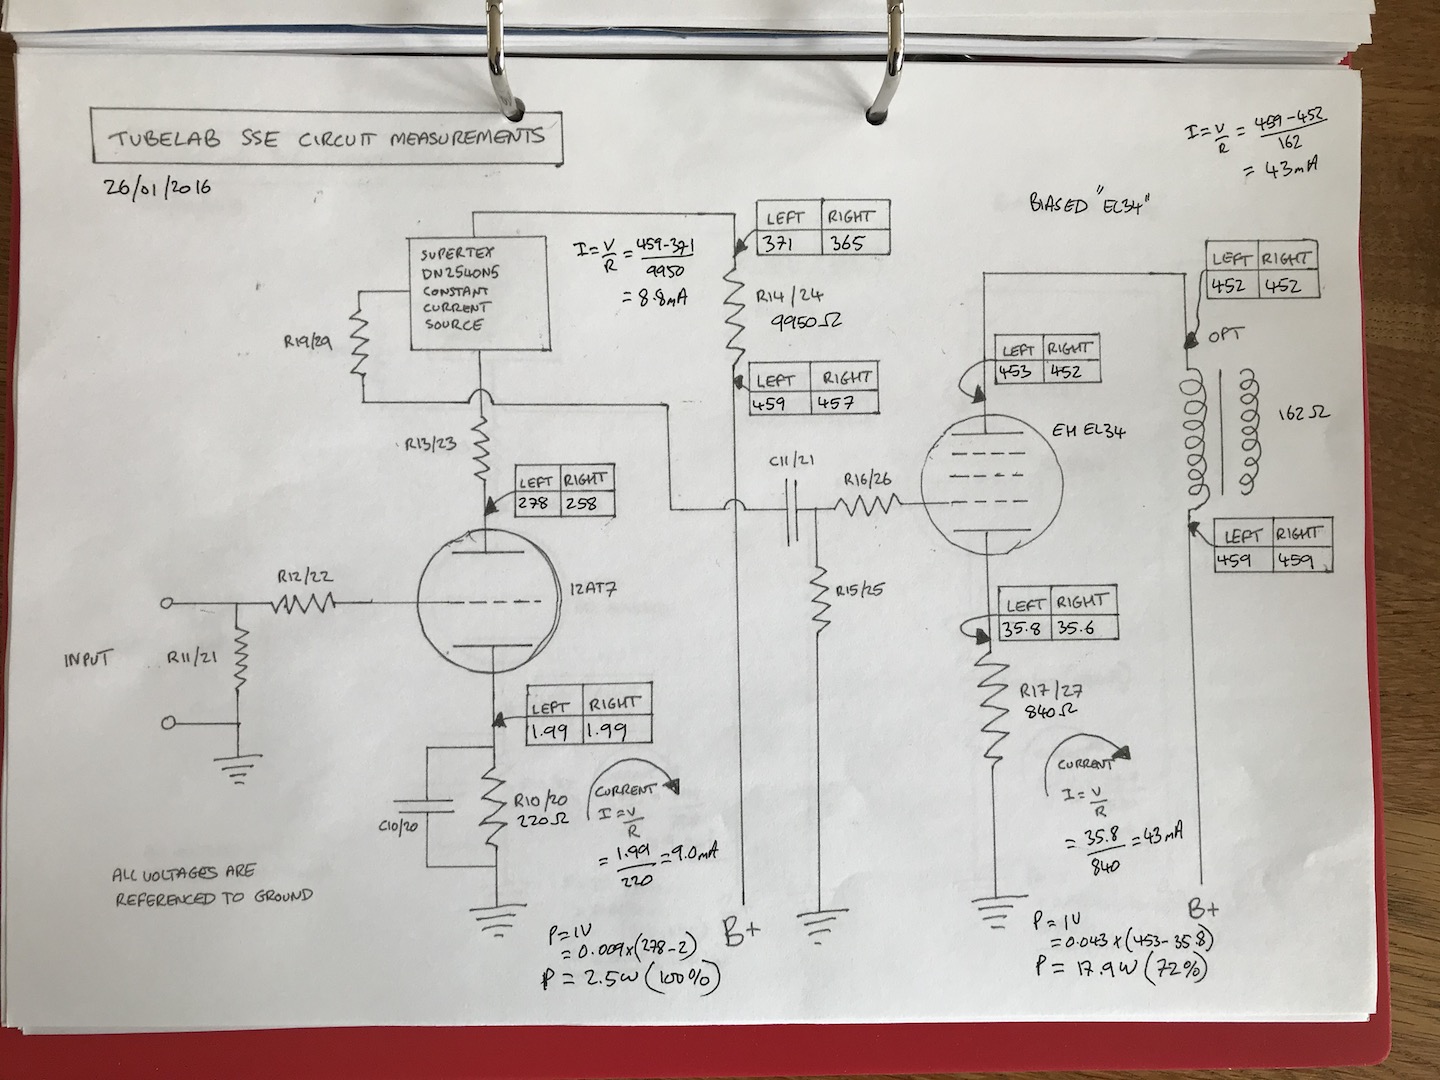 TUBELAB SSE CIRCUIT MEASUREMENTS
26/01/2016
I = V/R = 459-452/162
= 43mA
BIASED "EL34"
SUPERTEX
DN2540N5
CONSTANT
CURRENT
SOURCE
I = V/R = 459-371/9950
= 8.8mA
LEFT RIGHT
371 365
R14/24
9950Ω
LEFT RIGHT
459 457
R19/29
R13/23
LEFT RIGHT
278 258
LEFT RIGHT
453 452
LEFT RIGHT
452 452
OPT
162Ω
EH EL34
C11/21
R16/26
R15/25
LEFT RIGHT
459 459
R12/22
12AT7
INPUT
R11/21
LEFT RIGHT
1.99 1.99
LEFT RIGHT
35.8 35.6
R17/27
840Ω
CURRENT
I = V/R
= 35.8/840 = 43mA
C10/20
R10/20
220Ω
CURRENT
I = V/R
= 1.99/220 = 9.0mA
ALL VOLTAGES ARE
REFERENCED TO GROUND
P = IV
= 0.009 x (278-2)
P = 2.5W (100%)
B+
B+
P = IV
= 0.043 x (453-35.8)
P = 17.9W (72%)